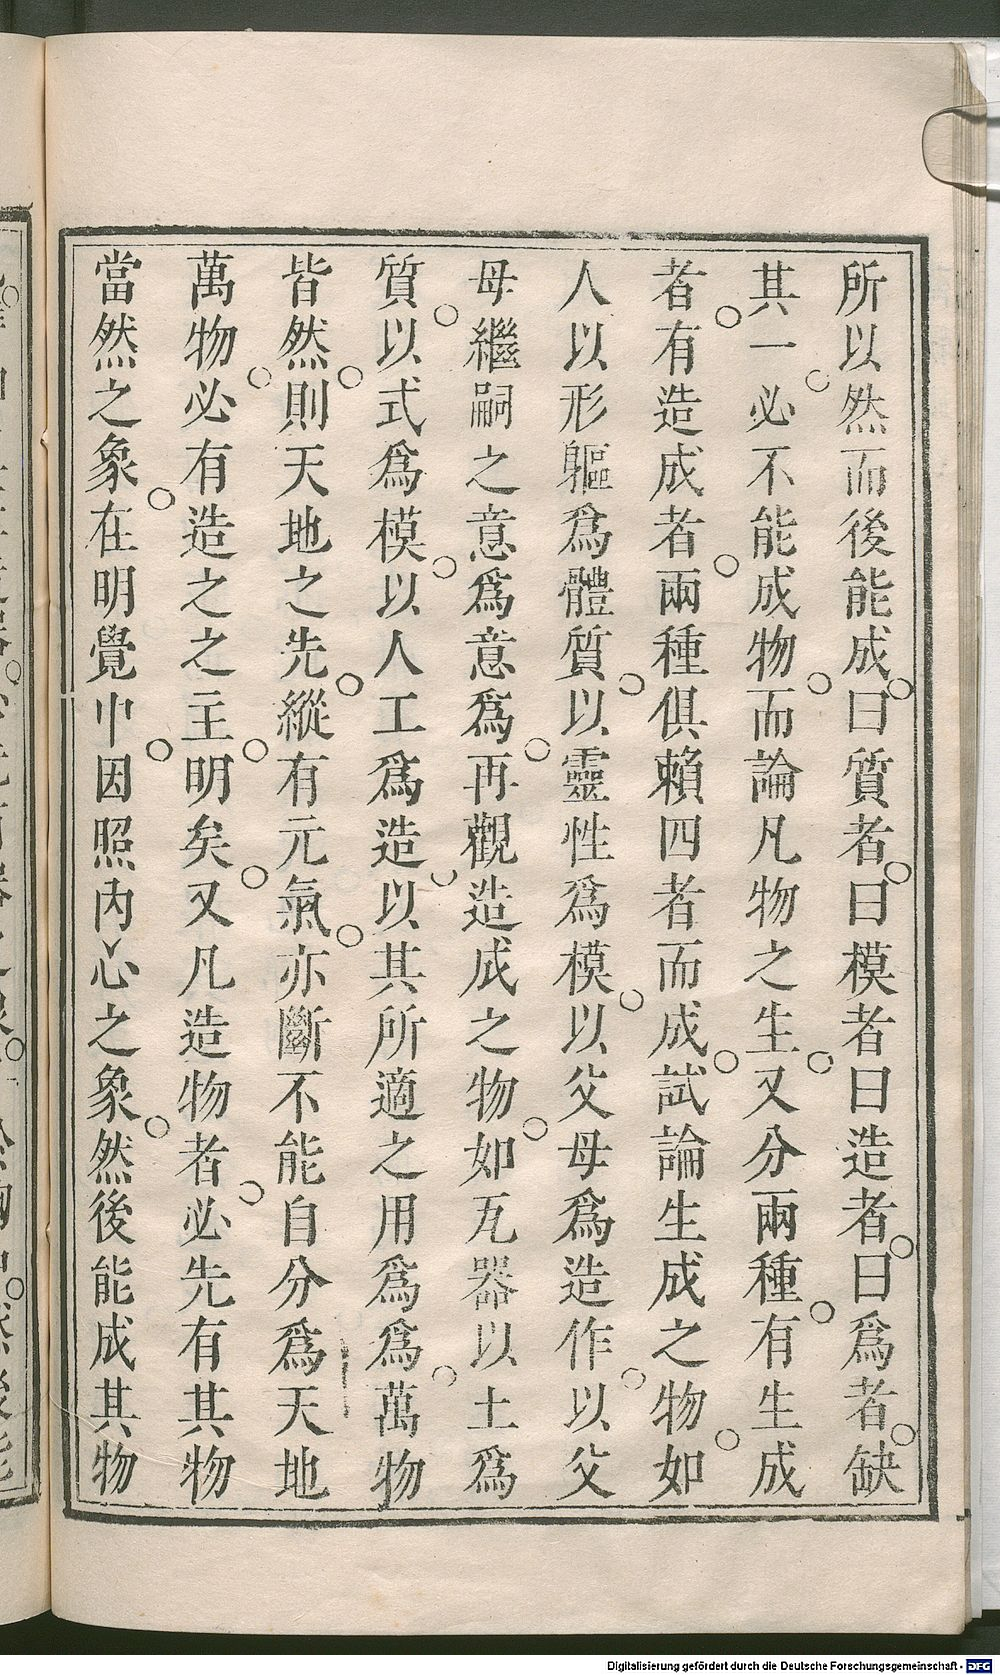 所以然而後能成曰質者曰模者曰造者曰爲者缺
其一必不能成物而論凡物之生又分兩種有生成
者有造成者兩種俱賴四者而成試論生成之物如
人以形軀爲體質以靈性爲模以父母爲造作以父
母繼嗣之意爲意爲再觀造成之物如瓦器以土爲
質以式爲模以人工爲造以其所適之用爲爲萬物
皆然則天地之先縱有元氣亦斷不能自分爲天地
萬物必有造之之主明矣又凡造物者必先有其物
當然之象在明覺中因照內心之象然後能成其物
Digitalisierung gefördert durch die Deutsche Forschungsgemeinschaft - DFG